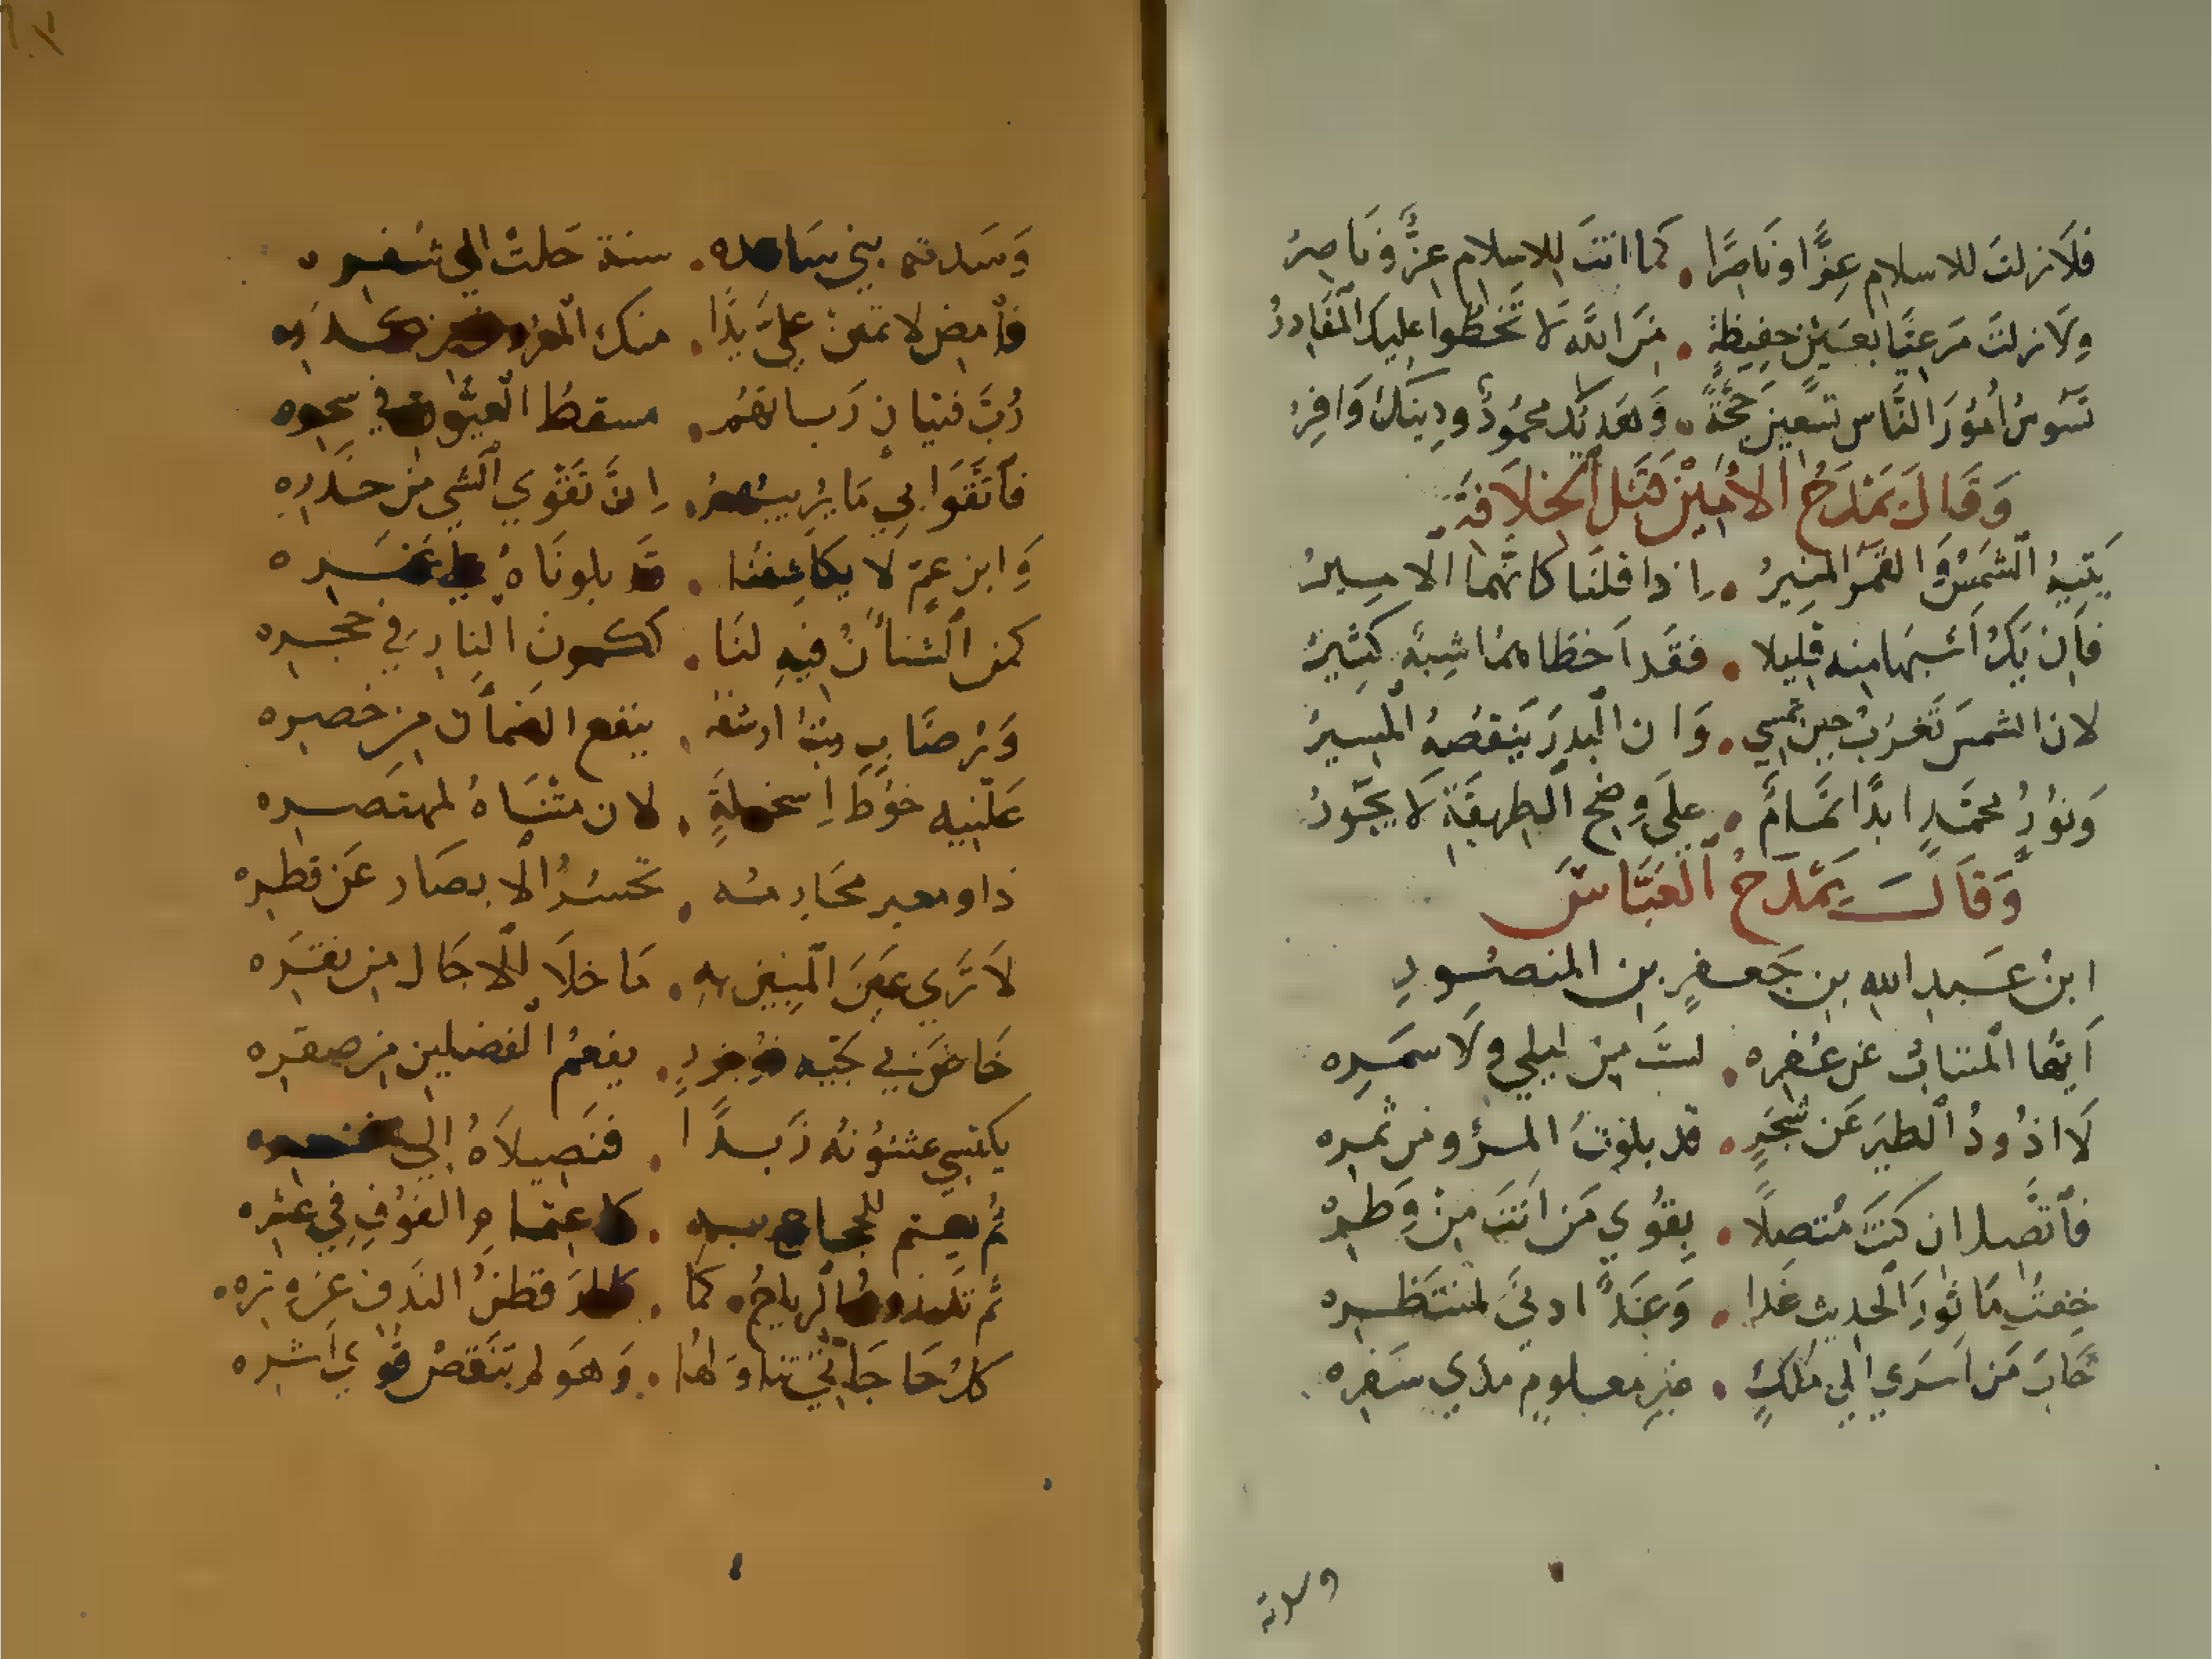 فلَا زلتَ للاسلام عِزًّا ونَاصرًا . كما انتَ للاسلام عزٌّ ونَاصِرُ
ولَا زلتَ مَرعيًّا بعَينِ حفِيظةٍ . مِنَ اللّه لَا تَخطُوا عليك المقَادِرُ
تسُوسُ امُورَ النَّاس تسعين حجَّةً . وَ محمُودٌ ودِينكَ وَافِرُ
وَقَالَ يَمْدَحُ الامِيْنَ قَبلَ الخلَافَةِ
يَتيهُ الشَمسُ وَالقمَر المنِيرُ . اِذا قلنَا كانَّهما الامِيرُ
فَاِن يَكُ اَشبَها منه قليلا . فقَد اَخطاهمُا شِبهٌ كَثِيرُ
لان الشمسَ تَغرُبُ حِين تمسِي . وَان البدرَ يَنقصُهُ المسِيرُ
وَنوُرُ محمَّدٍ ابدًا تمَامٌ . علَى وضِح الطريقَةِ لَا يحُورُ
وَقَالَ يَمْدَحُ العَبَّاسَ
ابنُ عَبدِ الله بن جَعفرٍ بن المنصُورِ
اَيّها المنتابُ عَن عُفرِه . لستَ مِن ليلي ولَا سمَرِه
لَا اذُودُ الطيرَ عَن شجَرٍ . قد بلوتُ المرَّ من ثمرِه
فاتَّصل ان كنتَ مُتصلًا . بِقُوَى مَن انتَ مِنْ وَطرِه
خِفتُ مَا ثُورَ الحديث غَدا . وَغَدٌ ادنَى لمنتَظِرِه
خَابَ مَن اسرَى الي مَلكٍ . غيرِ معلومٍ مدَي سَفرِه
وسدته
وَسَدته بني سَاعده . سنة حَلتْ الي شفرِه
فامضِ لا تمنن عليَّ يَدًا . منك المعرُوف من كدَرِه
رُبَّ فتيانٍ رَبَاتهُمُ . مسقطَ العيُّوق في سحرِه
فاتَّقَوا بي مَا يُريبهُمُ . اِنَّ تَقْوَي الشي من حذَرِه
وَابن عمٍ لَا يكاشفنَا . قَد بلونَاهُ علي غمَرِه
كمن الشنانُ فيهِ لنَا . ككمون النارِ في حجرِه
وَرُضابٍ بتُّ ارشفه . ينقع الظمان من خصرِه
عَلّنيه خوُطُ اِسحلةٍ . لان متنَاهُ لمهتصرِه
ذا ومغبر مخَارِمُه . تحسُرُ الابصار عَن قطرِه
لَا تَرَي عينَ المبِين بهِ . مَا خلَا للاجَال من بقرِه
خَاضَ بي لجّيه ذُو جَرزٍ . يفعُمُ الفضلين من صفرِه
يكتسي عثنوُنه زَبدًا . فنَصِيلَاهُ الي نحرِه
ثُم يعتم للحجاج به . كاعتمامِ الفوُفِ في عشرِه
ثم تذرُوهُ الرياحُ كما . طارَ قطنُ الندف عَن وترِه
كلُ حَاجَاتي تناوَلها . وَهوَ لم تَنقصْ قُوَى اشَرِه